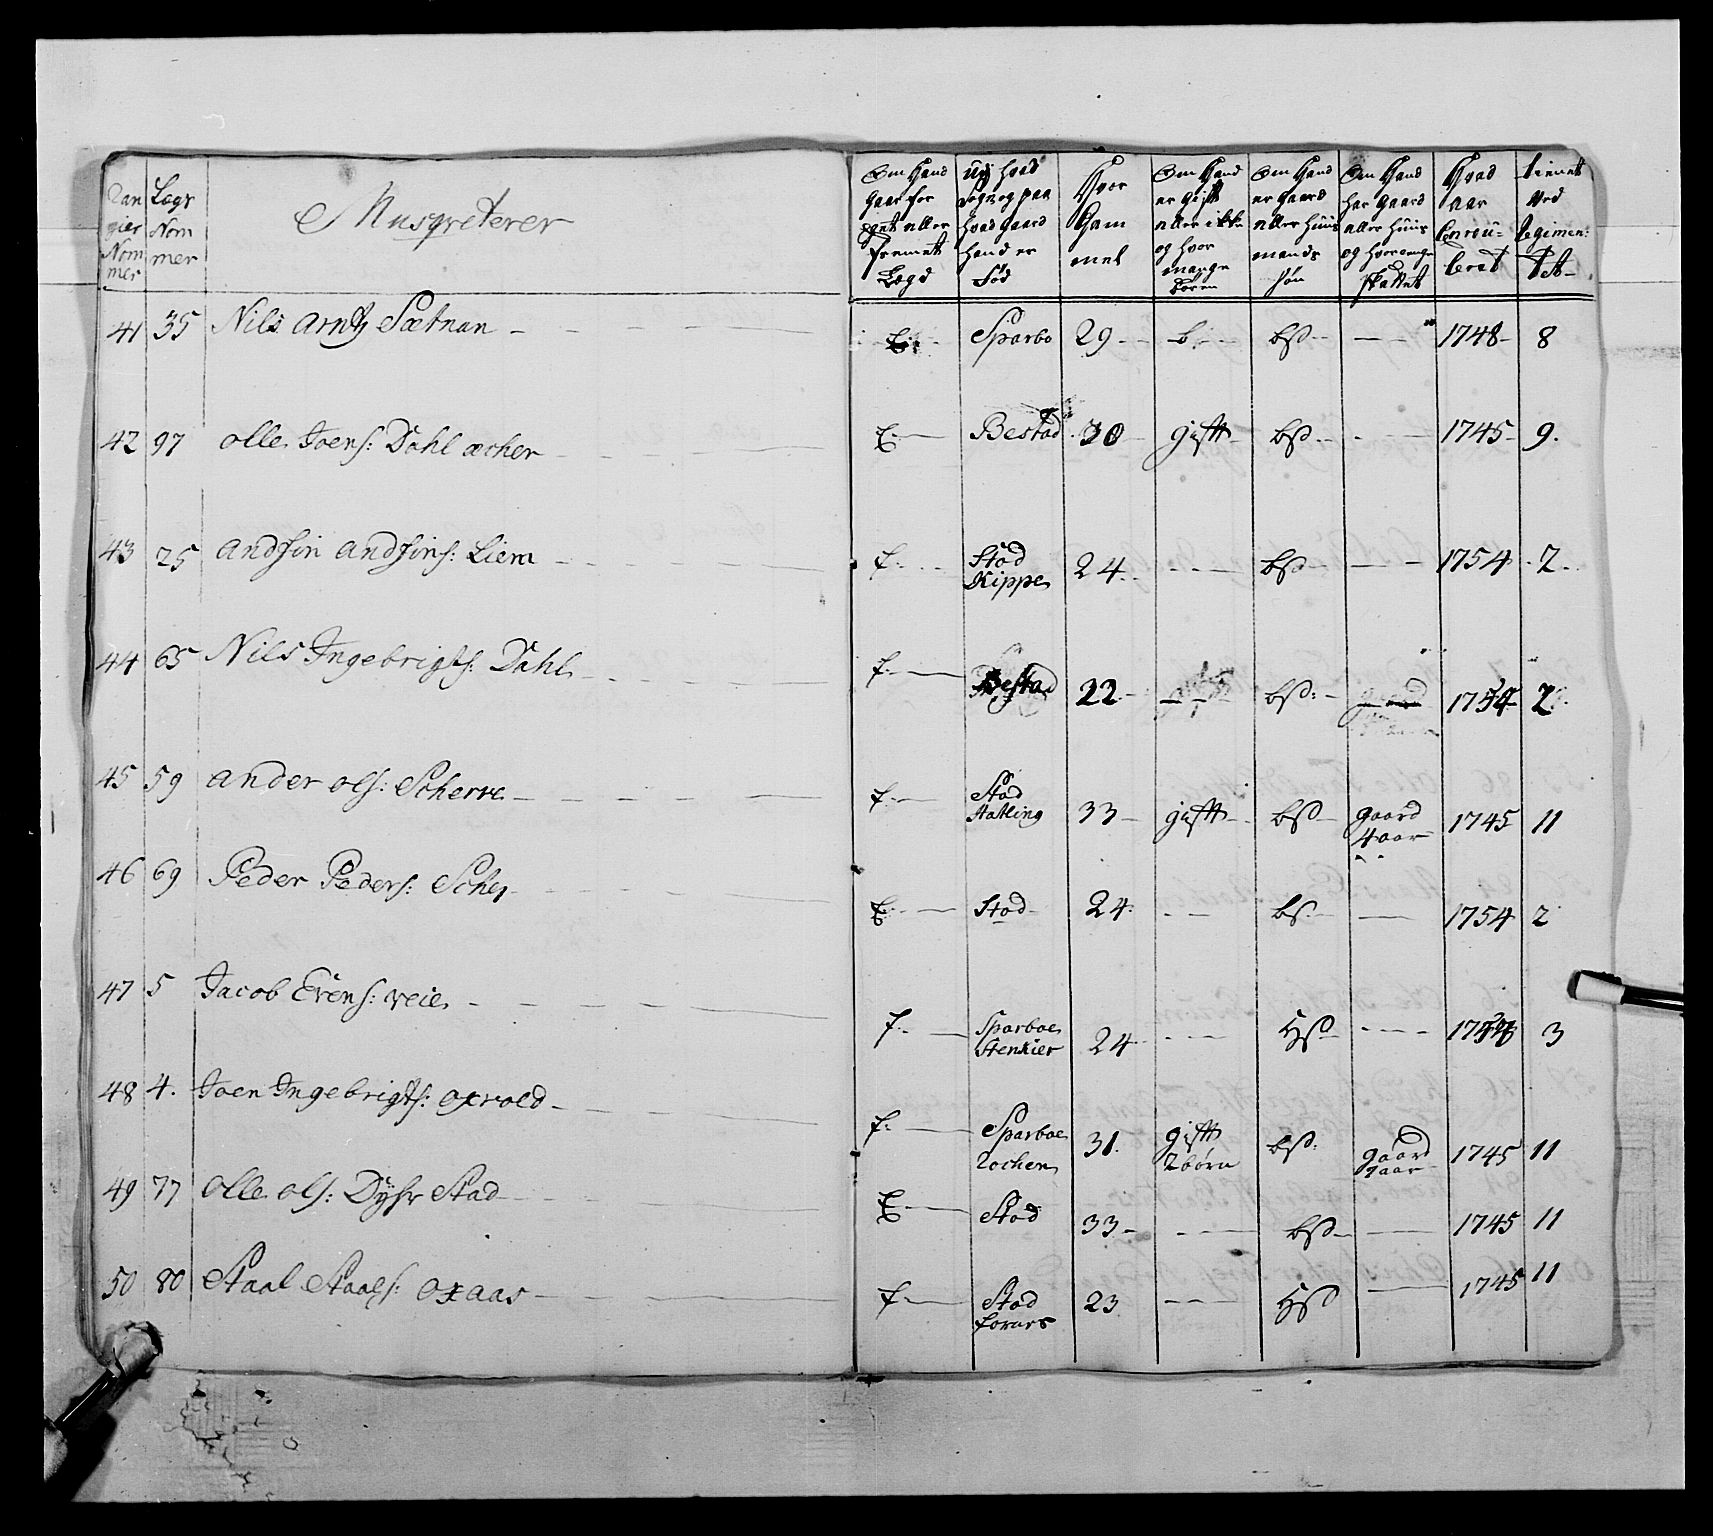 Ran gier Nom mer | Lægs Nom mer | Musqveterer | Om Hand gaar for eget eller fremmet Lægd | Udj hvad Sogn og paa hvad gaard hand er Fød | Hvor Gam mel | Om Hand er gift eller ikke og hvor mange Børn | Om Hand er gaard eller Huus mands søn | Om Hand har gaard eller Huus og hvor længe | Hvad aar Enrou- leret | tienet ved Regimen- tet
41 35 Nils Arntz Sætnan E: Sparbo 29 bsd 1748 8
42 97 Olle Joens: Dahl æcher E: Bestad 30 gift bsd 1745 9.
43 25 Andfin Andfins: Liem f: Stod Kippe 24 bsd 1754 2
44 65 Nils Ingebrigts: Dahl f: Bestad 22 bsd: 1754 2
45 59 Ander Ols: Scherre f: Stod Statling 33 gift bsd gaard 4 aar 1745 11
46 69 Peder Peders: Schey E: Stod 24 bs 1754 2
47 5 Jacob Evens: veie f: Sparboe Stenkier 24 Hsd 3
48 4. Joen Ingebrigts: Oxvold f: Sparboe 31. gift 2 børn bsd: gaard 1745 11
49 77 Olle Ols: Dyhr Stad E: Stod 33 bsd 1745 11
50 80 Staal Staals: Oxaas f: Stod 23 Hsd 1745 11